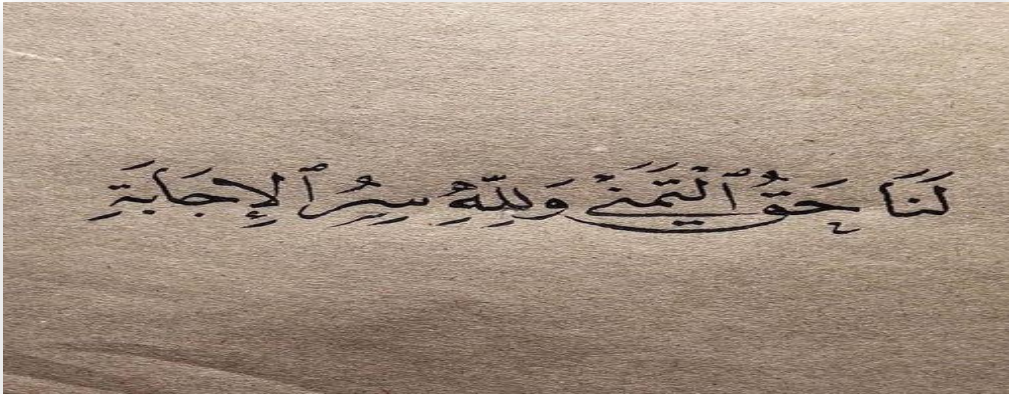 لَنَا حَقُّ ٱلتَّمَنِّي وَلِلّٰهِ سِرُّ ٱلإِجَابَةِ